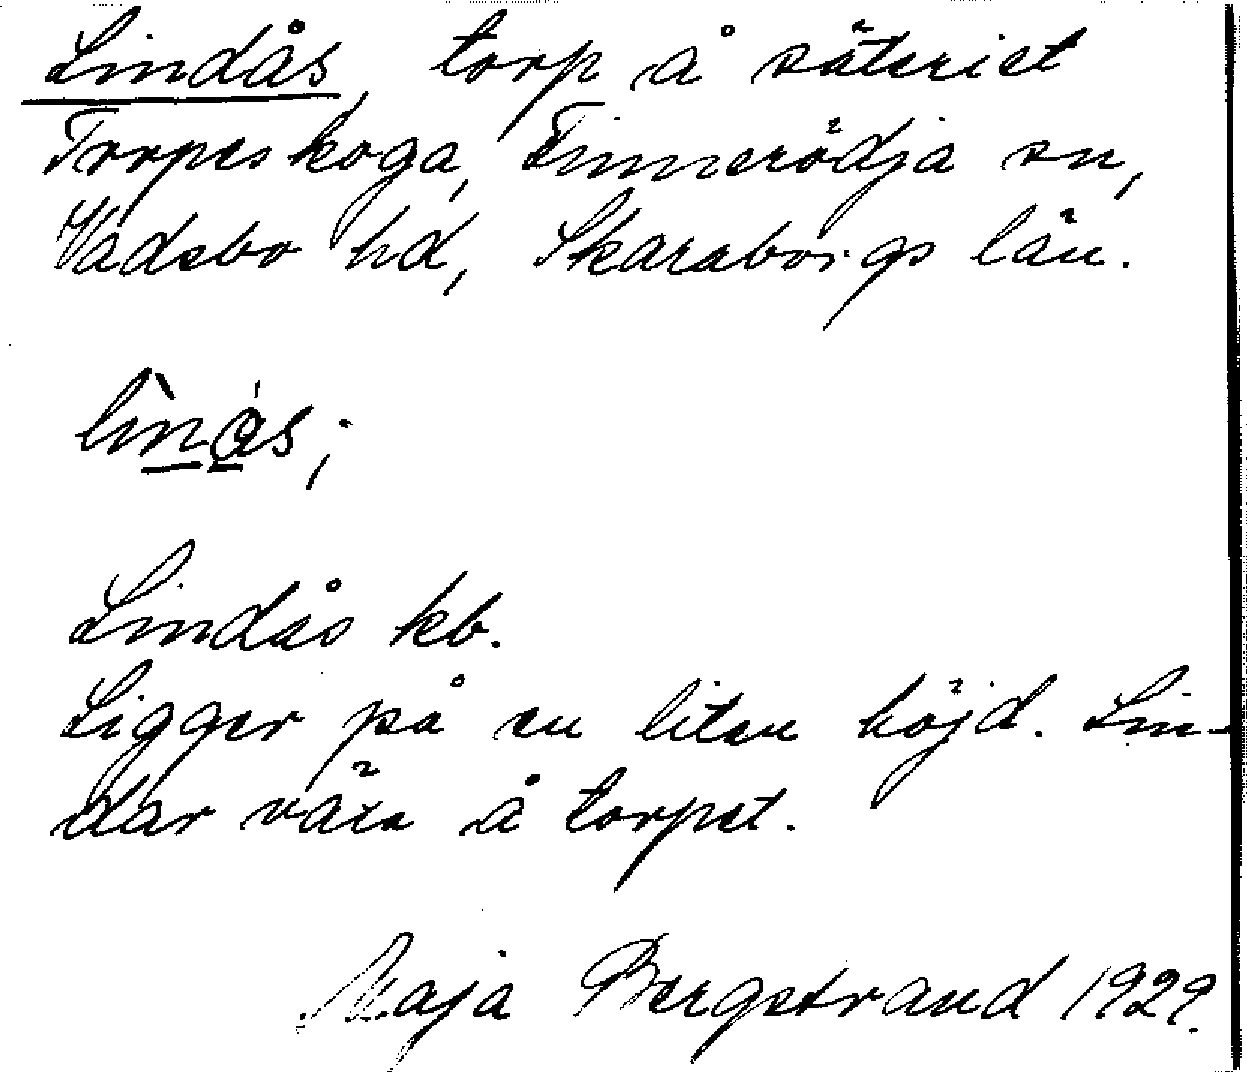 Lindås, torp å säteriet
Torpeskoga, Tinnerödja sn,
Vadsbo hd, Skaraborgs län.
lìnås;
Lindås kb.
Ligger på en liten höjd. Lin-
dar växa å torpet.
Maja Bergstrand 1929.